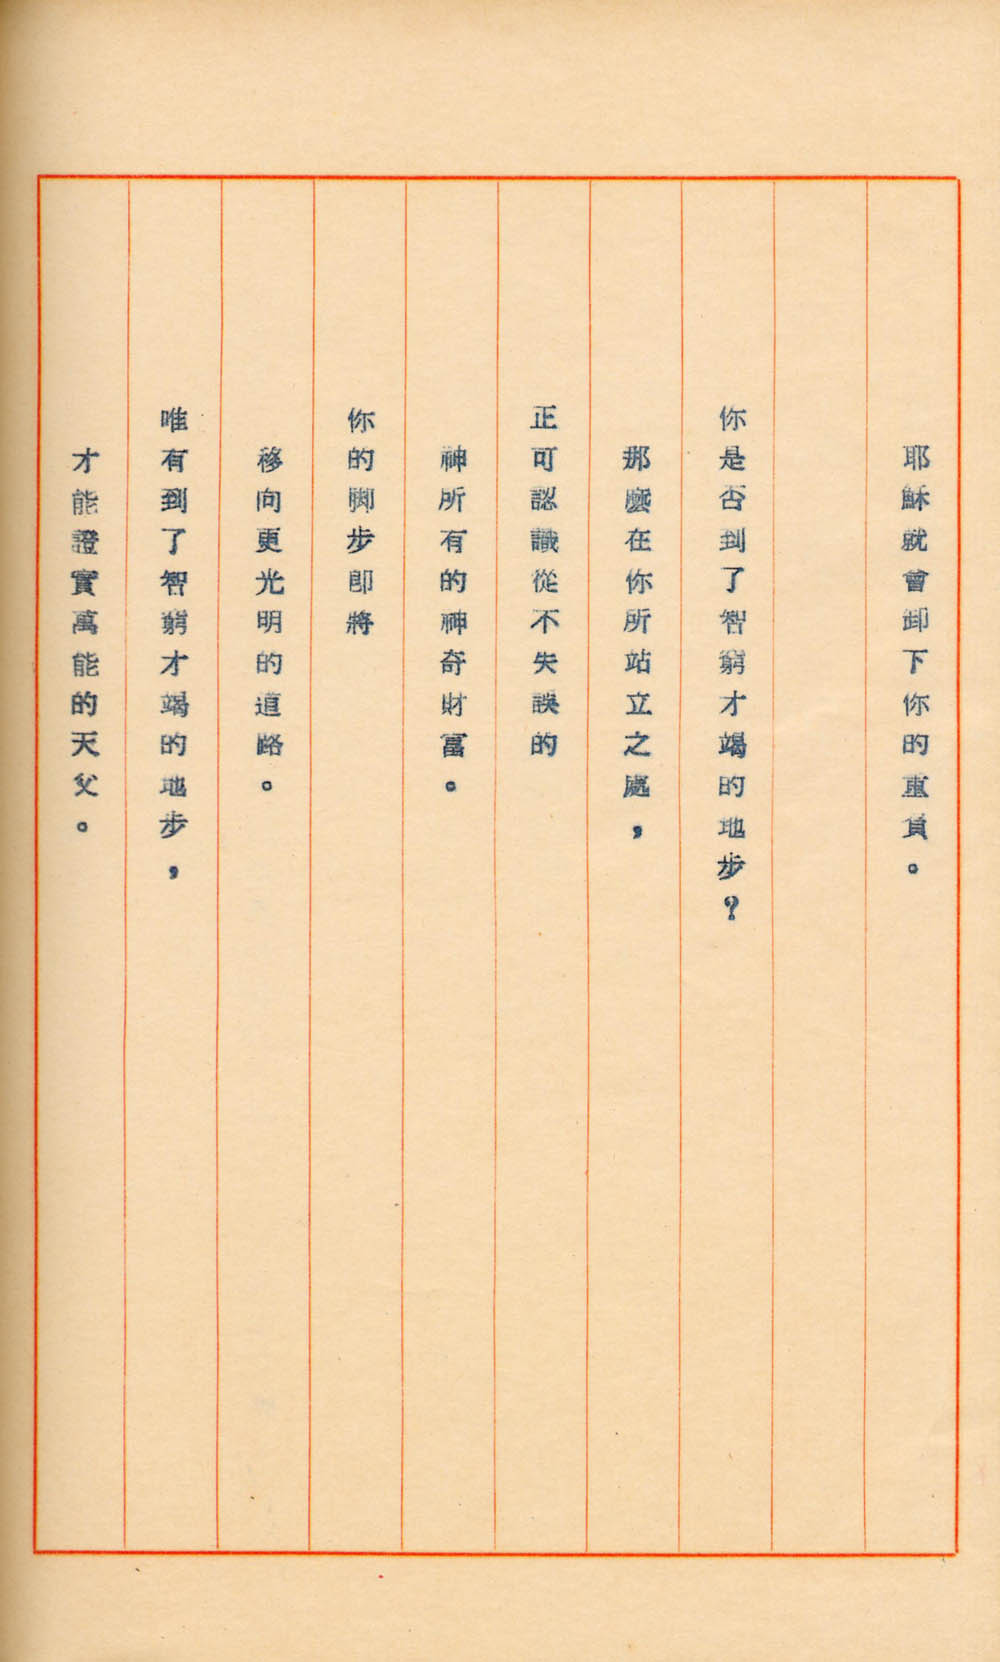 耶穌就會卸下你的重負。
你是否到了智窮才竭的地步？
那麼在你所站立之處，
正可認識從不失誤的
神所有的神奇財富。
你的脚步即將
移向更光明的道路。
唯有到了智窮才竭的地步，
才能證實萬能的天父。